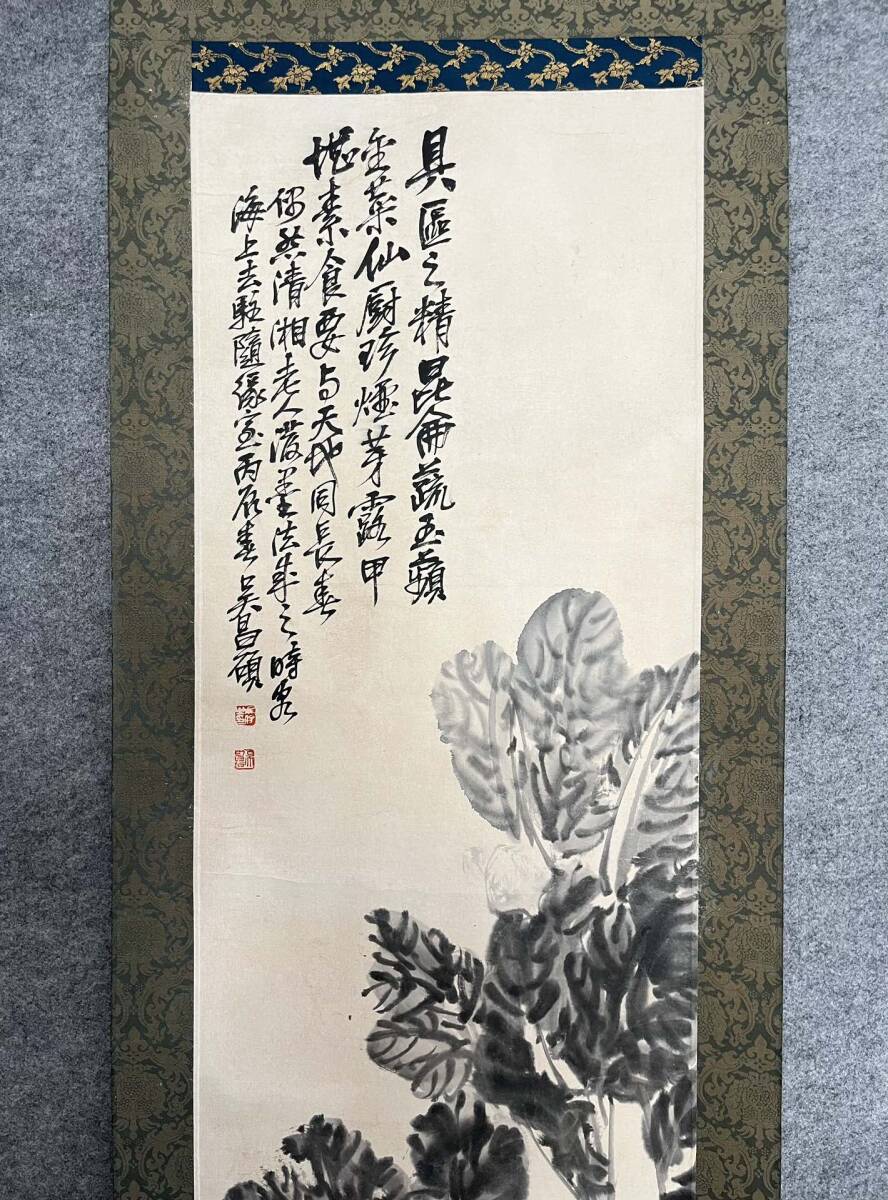 具區之精昆侖蔬玉蘋
金菜仙厨珍煙芽露甲
塊素食要与天地同長春
偶然清湘老人潑墨法成之時客
海上去駐隨緣室丙辰春吳昌碩